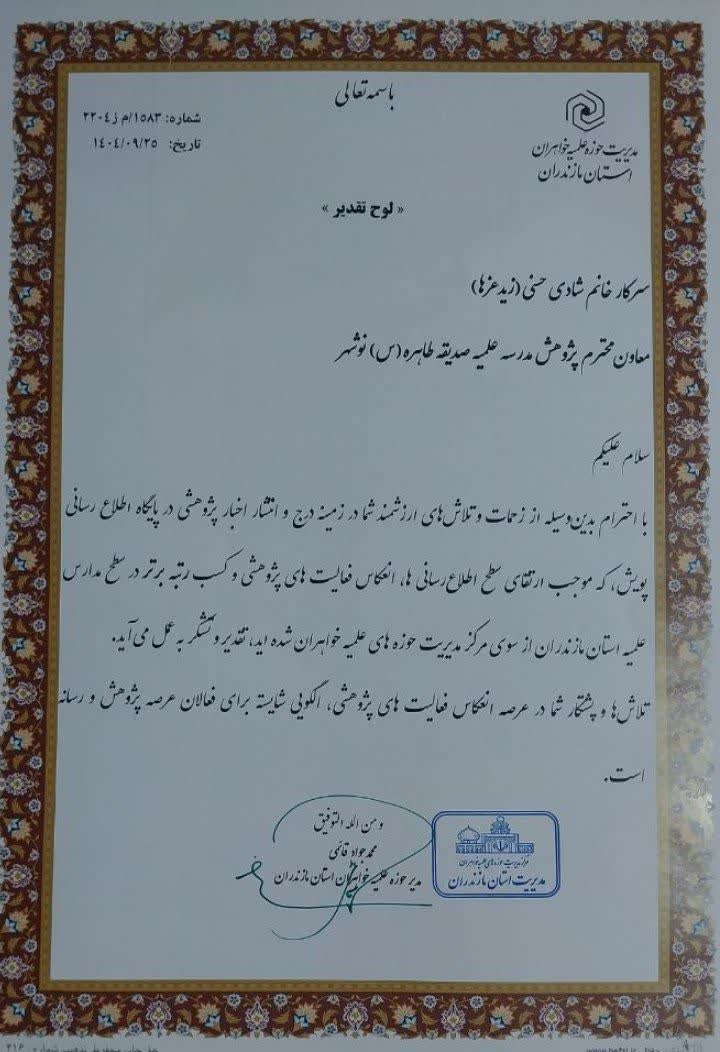 باسمه تعالی
مدیریت حوزه علمیه خواهران
استان مازندران
شماره: ۱۵۸۳/م ز ۲۲۰۴
تاریخ: ۱۴۰۴/۰۹/۲۵
« لوح تقدیر »
سرکار خانم شادی حسنی (زیدعزها)
معاون محترم پژوهش مدرسه علمیه صدیقه طاهره (س) نوشهر
سلام علیکم
با احترام بدین‌وسیله از زحمات و تلاش‌های ارزشمند شما در زمینه درج و انتشار اخبار پژوهشی در پایگاه اطلاع رسانی
پویش، که موجب ارتقای سطح اطلاع‌رسانی ها، انعکاس فعالیت های پژوهشی و کسب رتبه برتر در سطح مدارس
علمیه استان مازندران از سوی مرکز مدیریت حوزه های علمیه خواهران شده اید، تقدیر و تشکر به عمل می‌آید.
تلاش‌ها و پشتکار شما در عرصه انعکاس فعالیت های پژوهشی، الگویی شایسته برای فعالان عرصه پژوهش و رسانه
است.
و من الله التوفیق
محمدجواد قائمی
مدیر حوزه علمیه خواهران استان مازندران
مرکز مدیریت حوزه‌های علمیه خواهران
مدیریت استان مازندران